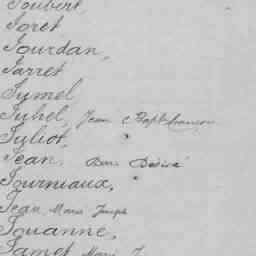 Joubert,
Joret
Jourdan,
Jarret
Jumel
Juhel, Jean
Juliot,
Jean, Désiré
Journiaux,
Jean, Marie Joseph
Jouanne,
Jamet, Marie J